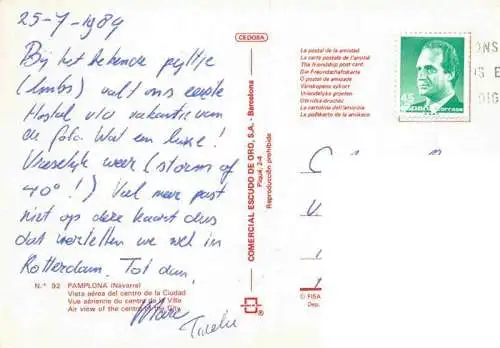 25-7-1989
Bij het bekende pijltje
(links) valt ons eerste
Hostal v/d vakantie van
de foto. Wat een luxe!
Vreselijk weer (storm of
40°!) Veel meer past
niet op deze kaart dus
dat vertellen we wel in
Rotterdam. Tot dan!
Marc
N.º 92 PAMPLONA (Navarra)
Vista aérea del centro de la Ciudad
Vue aérienne du centre de la Ville
Air view of the centre of the City
CEDOSA
COMERCIAL ESCUDO DE ORO, S.A. - Barcelona
Piqué, 2-4
Reproducción prohibida
La postal de la amistad
La carte postale de l'amitié
The friendship post card
Die Freundschaftskarte
O postal da amizade
Vänskapens vykort
Vriendelijke groeten
La cartolina dell'amicizia
45
España correos
ONS
OS E
DIG
© FISA
Dep.